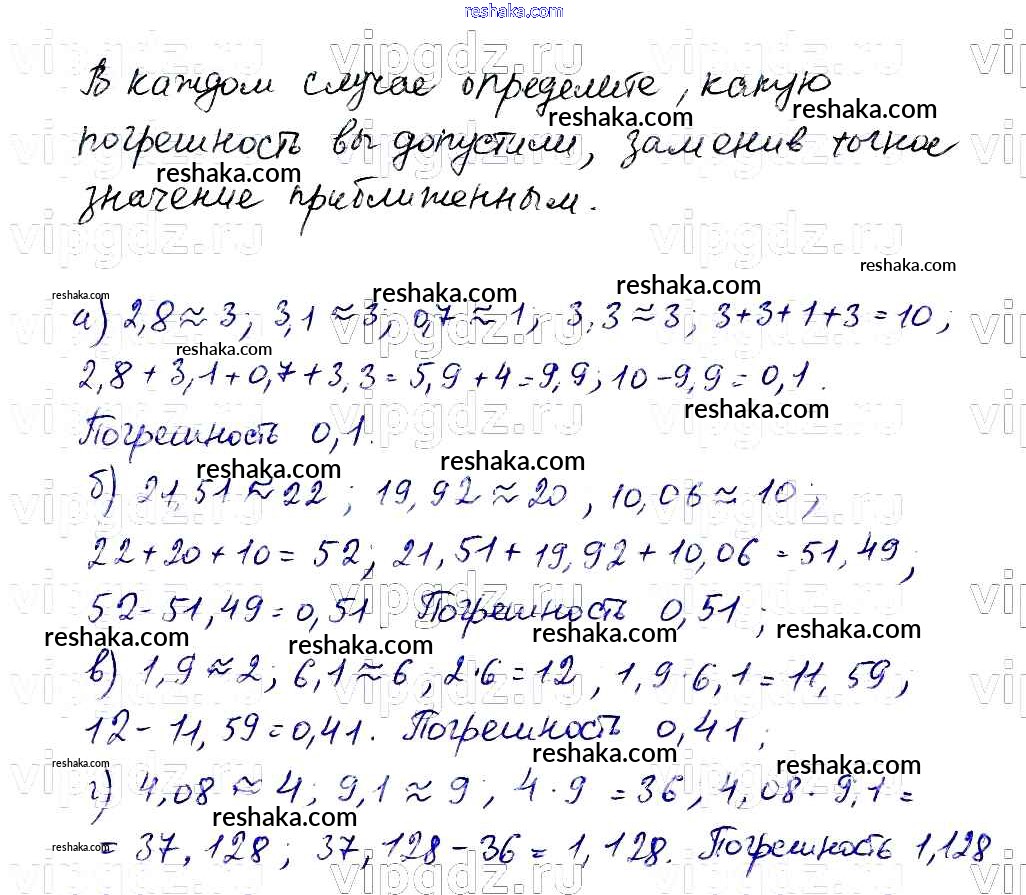 reshaka.com
В каждом случае определите, какую
погрешность вы допустили, заменив точное
значение приближенным.
а) 2,8 ≈ 3; 3,1 ≈ 3; 0,7 ≈ 1; 3,3 ≈ 3; 3+3+1+3 = 10;
2,8 + 3,1 + 0,7 + 3,3 = 5,9 + 4 = 9,9; 10 - 9,9 = 0,1.
Погрешность 0,1.
б) 21,51 ≈ 22; 19,92 ≈ 20, 10,06 ≈ 10;
22+20+10 = 52; 21,51 + 19,92 + 10,06 = 51,49;
52 - 51,49 = 0,51. Погрешность 0,51;
в) 1,9 ≈ 2; 6,1 ≈ 6, 2·6 = 12, 1,9·6,1 = 11,59;
12 - 11,59 = 0,41. Погрешность 0,41;
г) 4,08 ≈ 4; 9,1 ≈ 9, 4·9 = 36, 4,08·9,1 =
= 37,128; 37,128 - 36 = 1,128. Погрешность 1,128